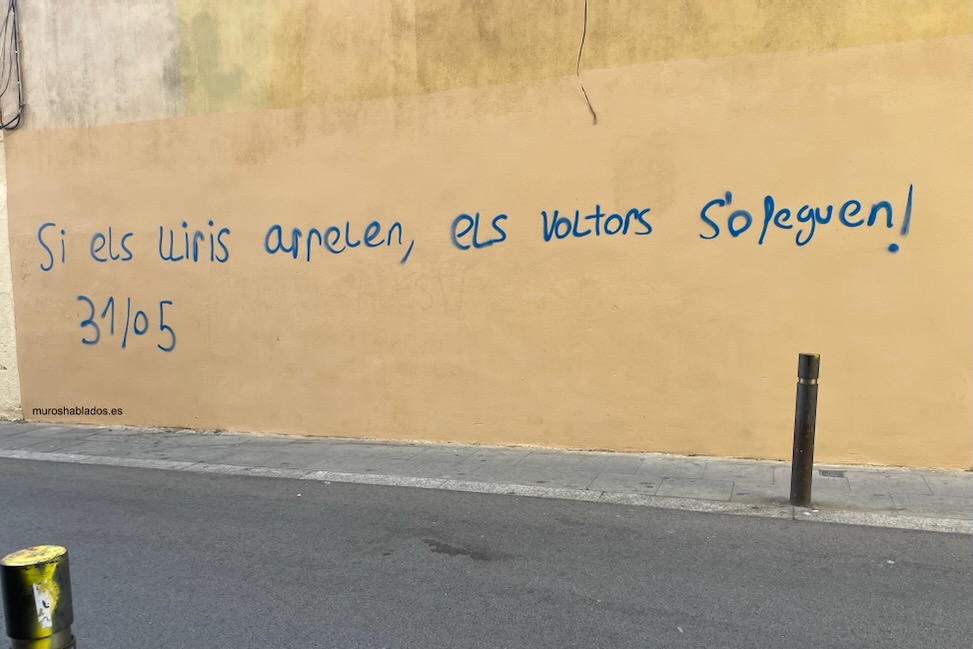 Si els lliris arrelen, els voltors s'ofeguen!
31/05
muroshablados.es